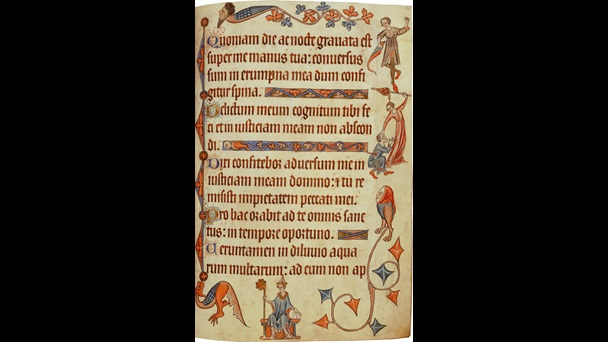 Quoniam die ac nocte gravata est
super me manus tua: conversus
sum in erumpna mea dum confi
gitur spina.
Delictum meum cognitum tibi fe
ci et iniusticiam meam non abscon
di.
Dixi confitebor adversum me in
iusticiam meam domino: et tu re
misisti impietatem peccati mei.
Pro hac orabit ad te omnis sanc
tus: in tempore oportuno.
Veruntamen in diluvio aqua
rum multarum: ad eum non ap